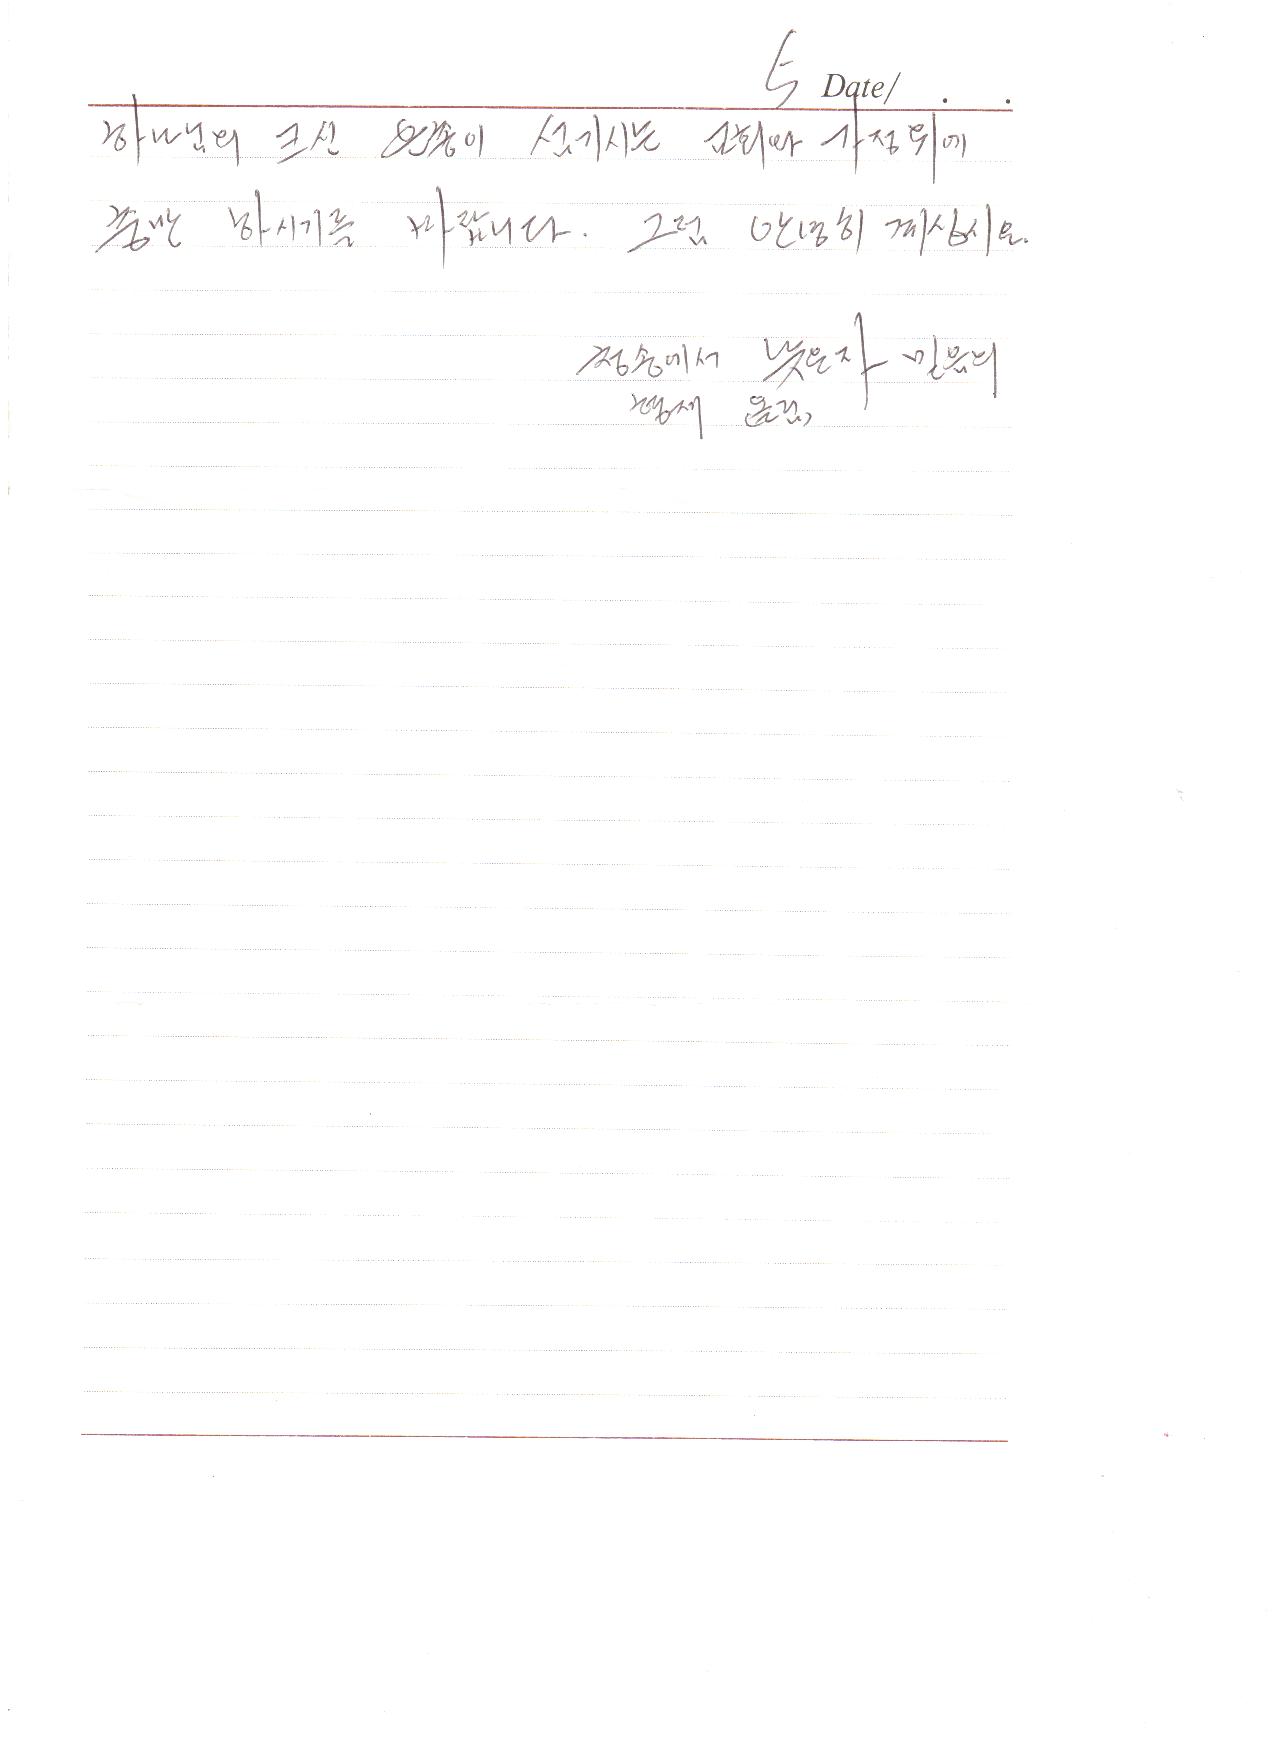 5 Date/ . .
하나님의 크신 은총이 섬기시는 교회와 가정위에
충만 하시기를 바랍니다. 그럼 안녕히 계십시요.
청송에서 낮은자 믿음의
형제 올림,